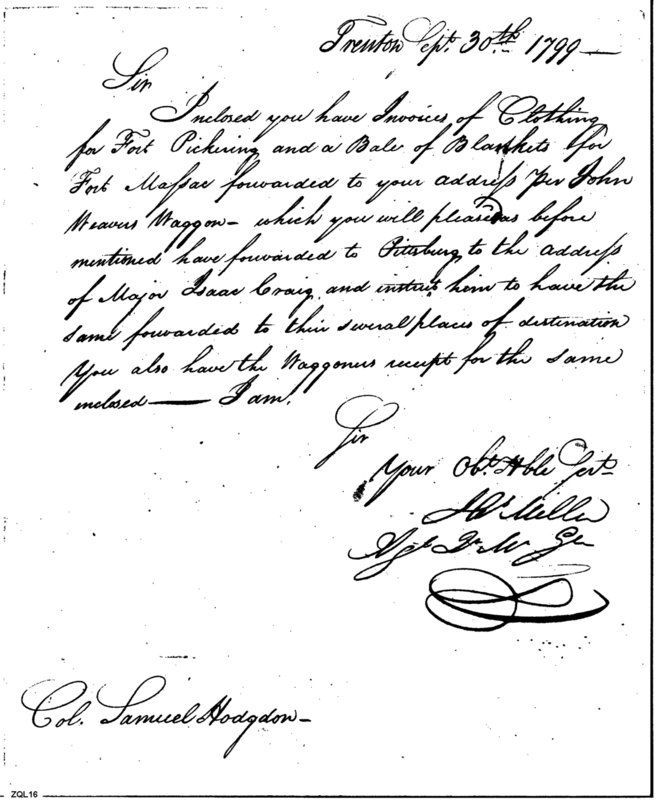 Trenton Sept. 30th. 1799 —
Sir
Inclosed you have Invoices of Clothing
for Fort Pickering and a Bale of Blankets for
Fort Massac forwarded to your address Per John
Weavers Waggon — which you will please as before
mentioned have forwarded to Pittsburg to the address
of Major Isaac Craig and instruct him to have the
same forwarded to their several places of destination
You also have the Waggoners receipt for the same
inclosed — I am.
Sir
Your Obt. Hble Sert.
Miller
Agt. Qr. Mr. Gen
Col. Samuel Hodgdon —
ZQL16